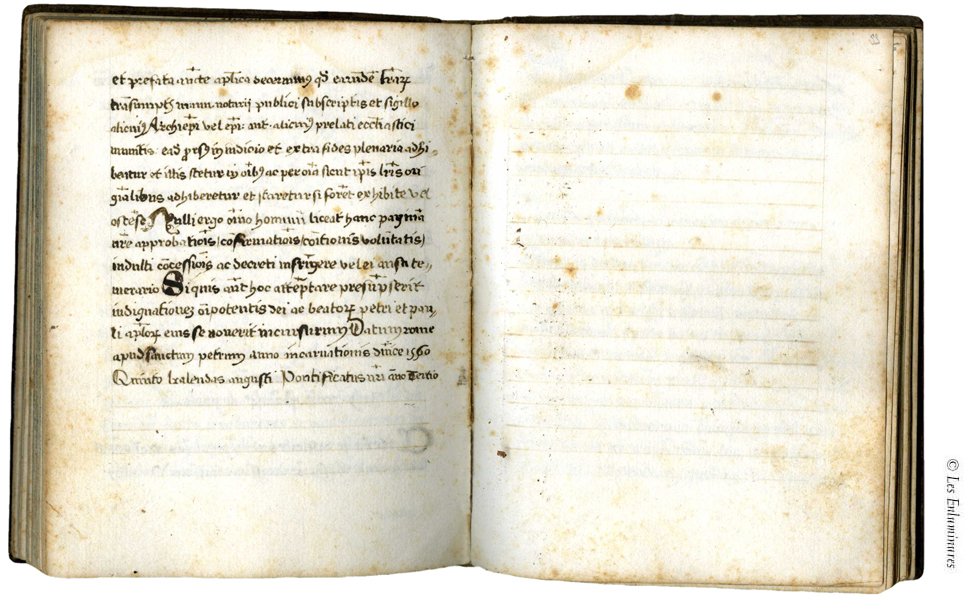 et prefata aucte aplica decernimus qd earundē lrarz
trasumptis manu notarii publici subscriptis et sigillo
alicuius Archiepi vel epi aut alicuius prelati ecclīastici
munitis ead prorsus in iudicio et extra fides plenaria adhi-
beatur et illis stetur in oībus ac per oīa sicut ipīs lrīs ori
gīalibus adhiberetur et staretur si foret exhibite vel
ostēse Nulli ergo oīno hominū liceat hanc pagīna
nre approbatiois cōfirmatiois voluntatis
indulti cōcessiois ac decreti infrīgere vel ei ausu te-
merario Si quis aūt hoc attēptare presūpserit
indignationez oīpotentis dei ac beatorz petri et pau-
li aplorz eius se noverit incursurum Datum rome
apud sanctum petrum anno incarnationis dnīce 1560
Quinto kalendas augusti Pontificatus nri ano Tertio
© Les Enluminures